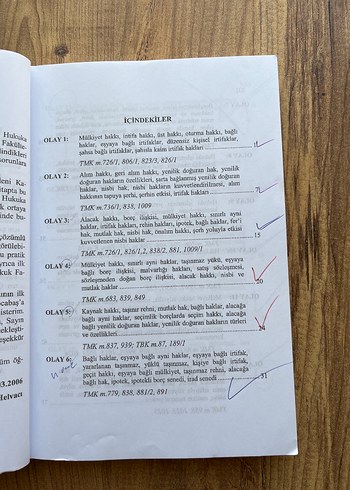 Hukuka
Fakülte-
indikleri
sorunlara
eni Ka-
itapta bu
Hukuka
k ortaya
inde bu-
çözümlü
rütülebi-
u pratik
yrıca il-
kuk Fa-
ının ilk
ocabaza'a
mlarını
, Sayın
ekleşti-
eşekkür
üm öğ-
03.2006
Helvacı
İÇİNDEKİLER
OLAY 1: Mülkiyet hakkı, intifa hakkı, üst hakkı, oturma hakkı, bağlı
haklar, eşyaya bağlı irtifaklar, düzensiz kişisel irtifaklar,
şahsa bağlı irtifaklar, şahısla kaim irtifak hakları
TMK m.726/1, 806/1, 823/3, 826/1
OLAY 2: Alım hakkı, geri alım hakkı, yenilik doğuran hak, yenilik
doğuran hakların özellikleri, şarta bağlanmış yenilik doğuran
haklar, nisbi hak, nisbi hakların kuvvetlendirilmesi, alım
hakkının tapuya şerhi, şerhin etkisi, irtifak hakları
TMK m.736/1, 838, 1009
OLAY 3: Alacak hakkı, borç ilişkisi, mülkiyet hakkı, sınırlı ayni
haklar, irtifak hakları, rehin hakları, ipotek, bağlı haklar, fer'i
hak, mutlak hak, nisbi hak, önalım hakkı, şerh yoluyla etkisi
kuvvetlenen nisbi haklar 15
TMK m.726/1, 826/1,2, 838/2, 881, 1009/1
OLAY 4: Mülkiyet hakkı, sınırlı ayni haklar, taşınmaz yükü, eşyaya
bağlı borç ilişkisi, malvarlığı hakları, satış sözleşmesi,
sözleşmeden doğan borç ilişkisi, alacak hakkı, nisbi ve
mutlak haklar 20
TMK m.683, 839, 849
OLAY 5: Kaynak hakkı, taşınır rehni, mutlak hak, bağlı haklar, alacağa
bağlı ayni haklar, seçimlik borçlarda seçim hakkı, alacağa
bağlı yenilik doğuran haklar, yenilik doğuran hakların türleri
ve özellikleri
TMK m.837, 939; TBK m.87, 189/1
OLAY 6: Bağlı haklar, eşyaya bağlı ayni haklar, eşyaya bağlı irtifak,
yararlanan taşınmaz, yüklü taşınmaz, kişiye bağlı irtifak,
geçit hakkı, eşyaya bağlı mülkiyet, taşınmaz rehni, alacağa
bağlı hak, ipotek, ipotekli borç senedi, irad senedi 31
TMK m.779, 838, 881/2, 891